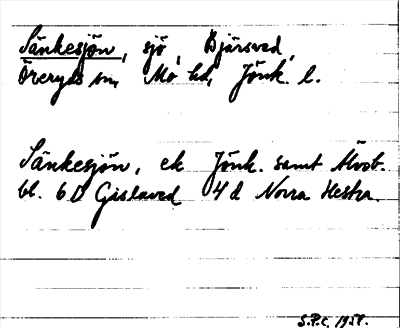 Sänkesjön, sjö, Bjärsved,
Öreryds sn, Mo hd, Jönk. l.
Sänkesjön, ek Jönk. samt Älvsb.
bl. 6 D Gislaved 4 d Norra Hestra.
S.P.C. 1958.